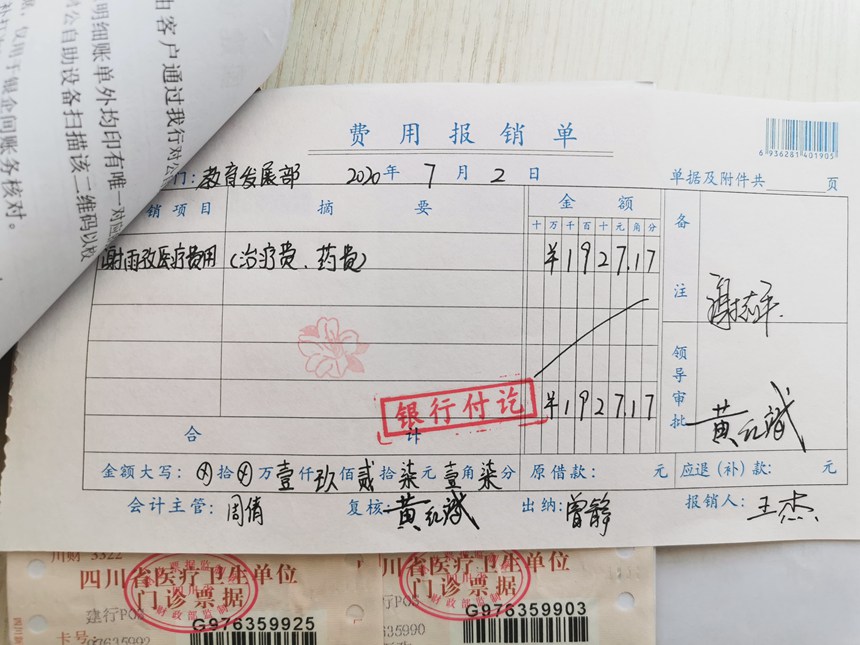 由客户通过我行对公
明细账单外均印有唯一对应
公自助设备扫描该二维码以校
间账务核对。
费用报销单
6936281401905
门：教育发展部 2020年7月2日 单据及附件共 页
销项目 摘要 金额 备注
十万千百十元角分
谢雨孜医疗费用 (治疗费、药费) ¥1927.17
谢志平
领导审批
黄红斌
银行付讫
合计 ¥1927.17
金额大写：⊗拾⊗万壹仟玖佰贰拾柒元壹角柒分 原借款： 元 应退（补）款： 元
会计主管：周倩 复核：黄红斌 出纳：曾静 报销人：王杰
川财 3322
四川省医疗卫生单位 四川省医疗卫生单位
门诊票据 门诊票据
建行POS
G976359925 G976359903
卡号